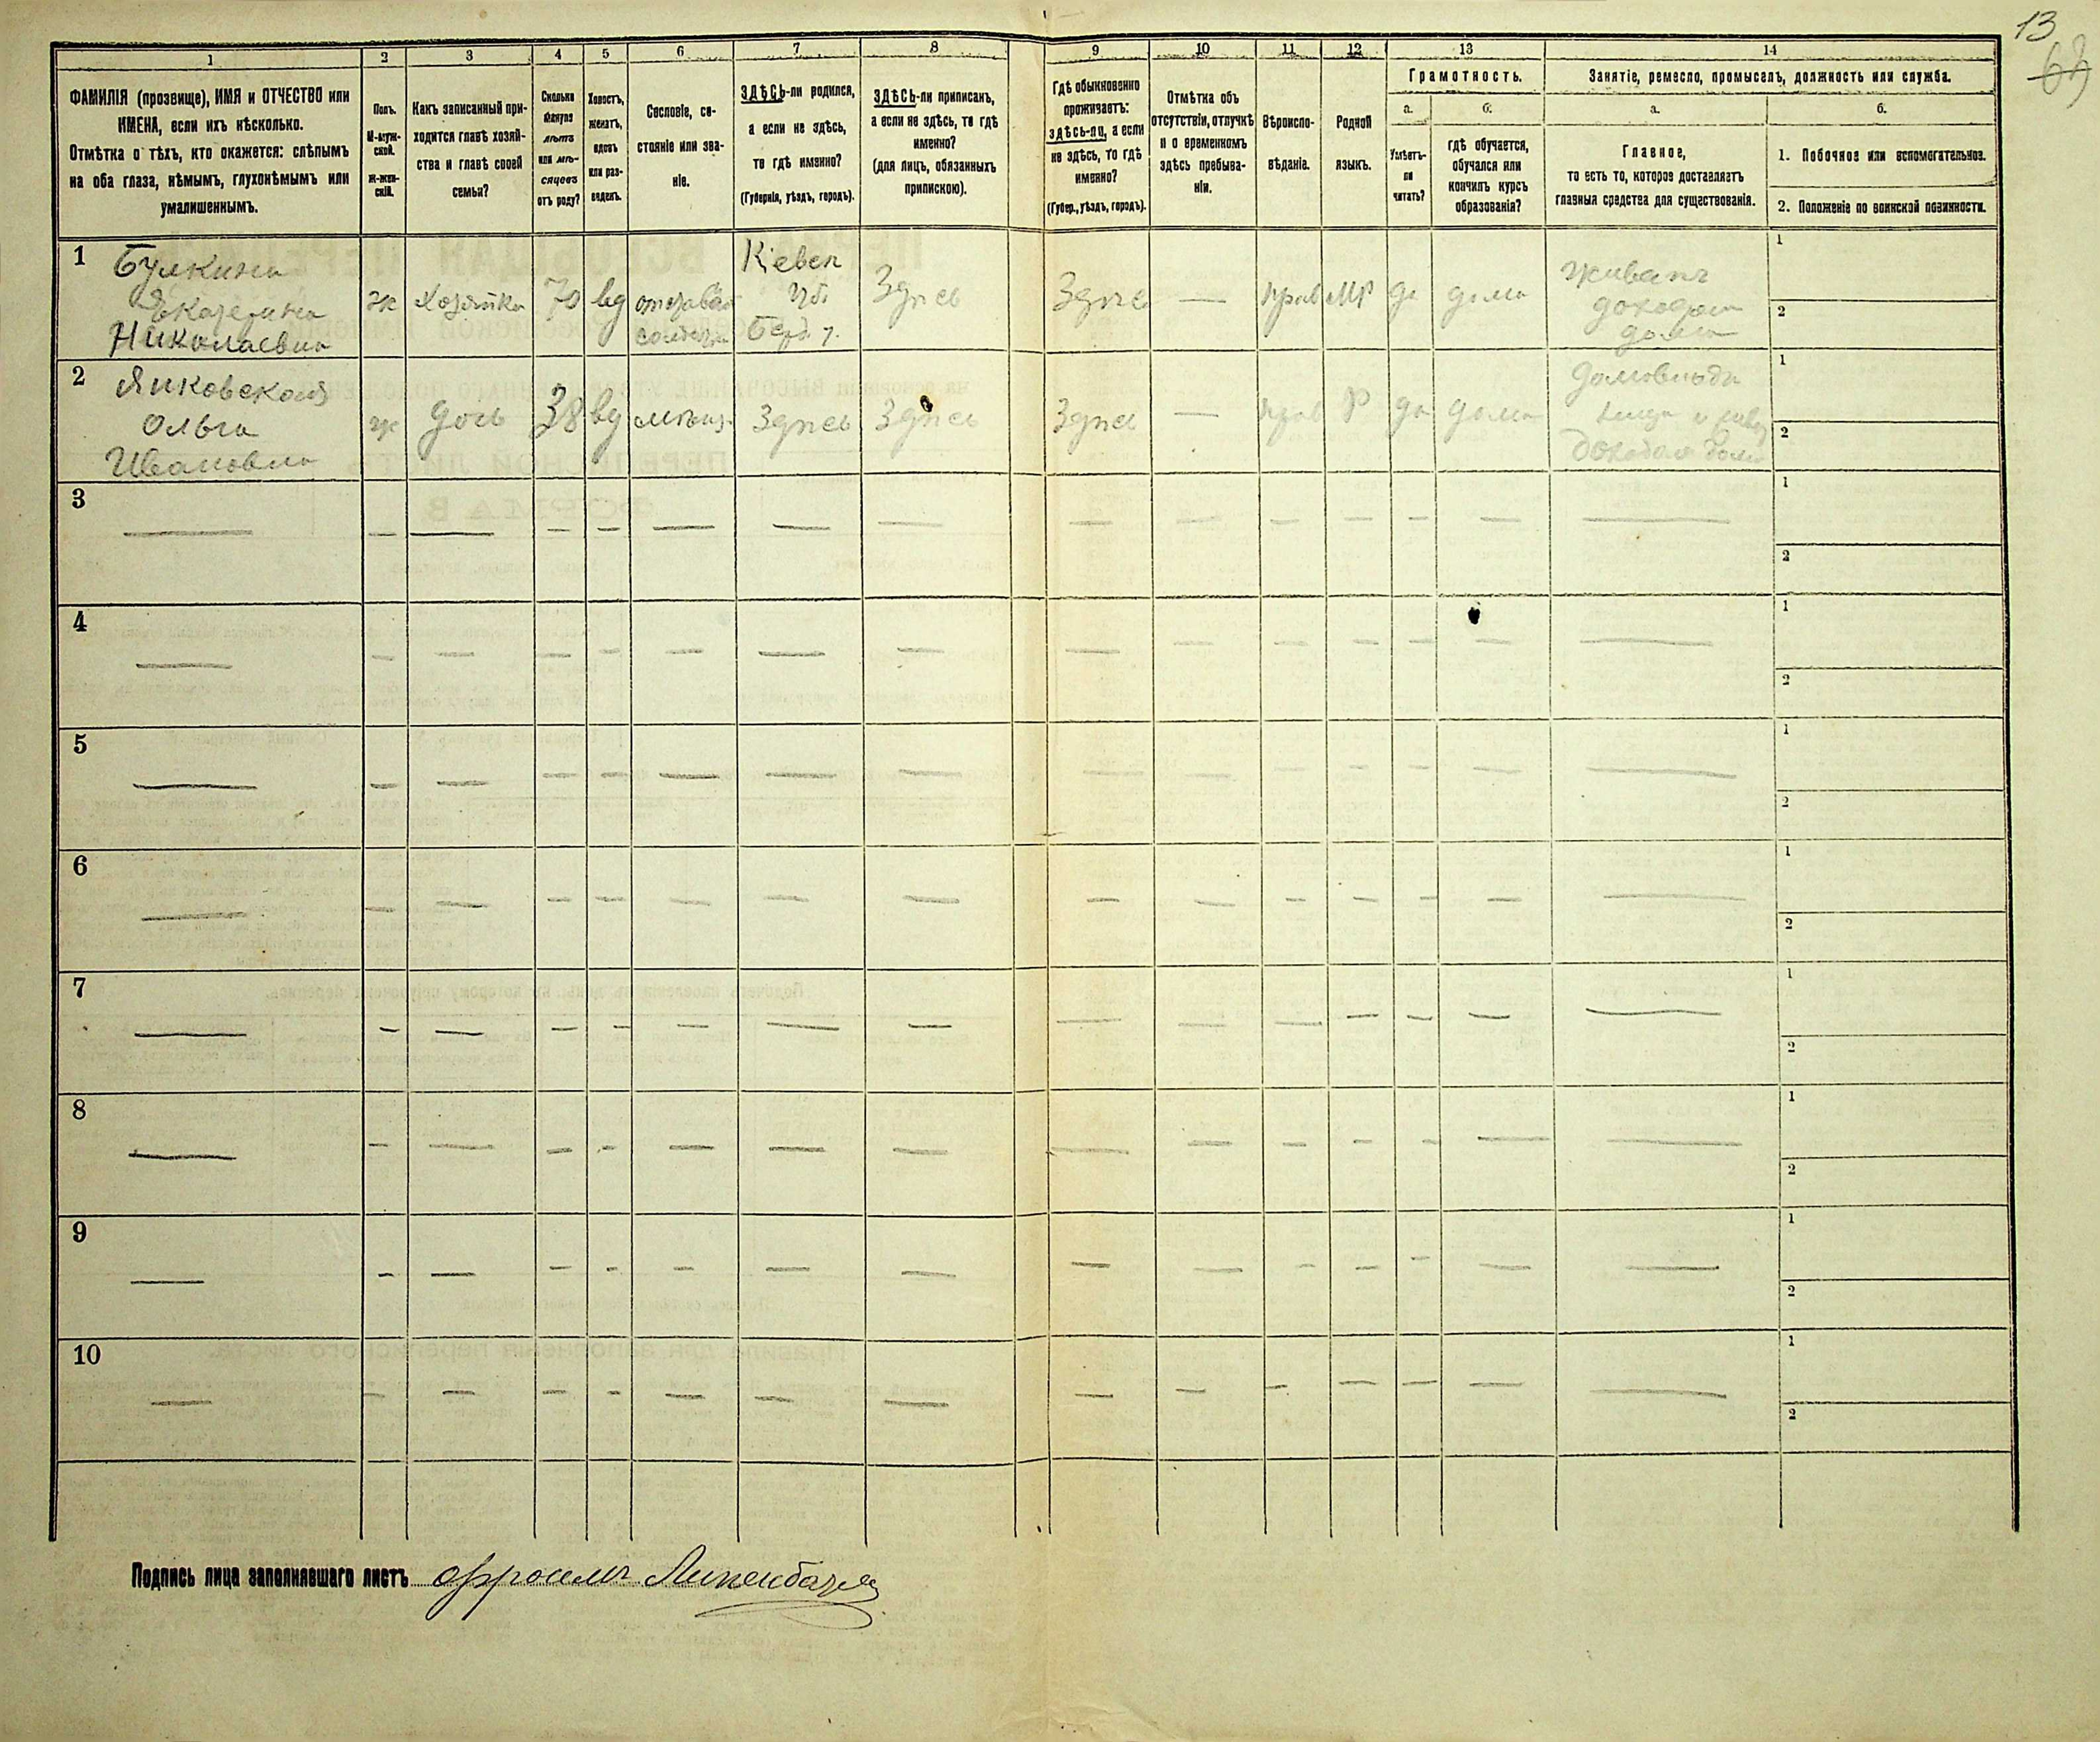 13
69
1
2
3
4
5
6
7
8
9
10
11
12
13
14
ФАМИЛІЯ (прозвище), ИМЯ и ОТЧЕСТВО или
ИМЕНА, если ихъ нѣсколько.
Отмѣтка о тѣхъ, кто окажется: слѣпымъ
на оба глаза, нѣмымъ, глухонѣмымъ или
умалишеннымъ.
Полъ.
М-муж-
ской.
ж-жен-
скій.
Какъ записанный при-
ходится главѣ хозяй-
ства и главѣ своей
семьи?
Сколько
минуло
лѣтъ
или мѣ-
сяцевъ
отъ роду?
Холостъ,
женатъ,
вдовъ
или раз-
веденъ.
Сословіе, со-
стояніе или зва-
ніе.
ЗДѢСЬ-ли родился,
а если не здѣсь,
то гдѣ именно?
(Губернія, уѣздъ, городъ).
ЗДѢСЬ-ли приписанъ,
а если не здѣсь, то гдѣ
именно?
(для лицъ, обязанныхъ
припискою).
Гдѣ обыкновенно
проживаетъ:
здѣсь-ли, а если
не здѣсь, то гдѣ
именно?
(Губер., уѣздъ, городъ).
Отмѣтка объ
отсутствіи, отлучкѣ
и о временномъ
здѣсь пребыва-
ніи.
Вѣроиспо-
вѣданіе.
Родной
языкъ.
Грамотность.
а.
Умѣетъ-
ли
читать?
б.
гдѣ обучается,
обучался или
кончилъ курсъ
образованія?
Занятіе, ремесло, промыселъ, должность или служба.
а.
Главное,
то есть то, которое доставляетъ
главныя средства для существованія.
б.
1. Побочное или вспомогательное.
2. Положеніе по воинской повинности.
1
Булкина
Екатерина
Николаевна
ж
Хозяйка
70
вд
отставн
солдатка
Кіевск
губ
Берд. у.
Здѣсь
Здѣсь
—
прав
МР
да
дома
живетъ
доходом
дома
1
2
2
Янковская
Ольга
Ивановна
ж
дочь
38
вд
мѣщ.
Здѣсь
Здѣсь
Здѣсь
—
прав
Р
да
дома
домовладѣ
доходом дома
1
2
3
1
2
4
1
2
5
1
2
6
1
2
7
1
2
8
1
2
9
1
2
10
1
2
Подпись лица заполнявшаго листъ